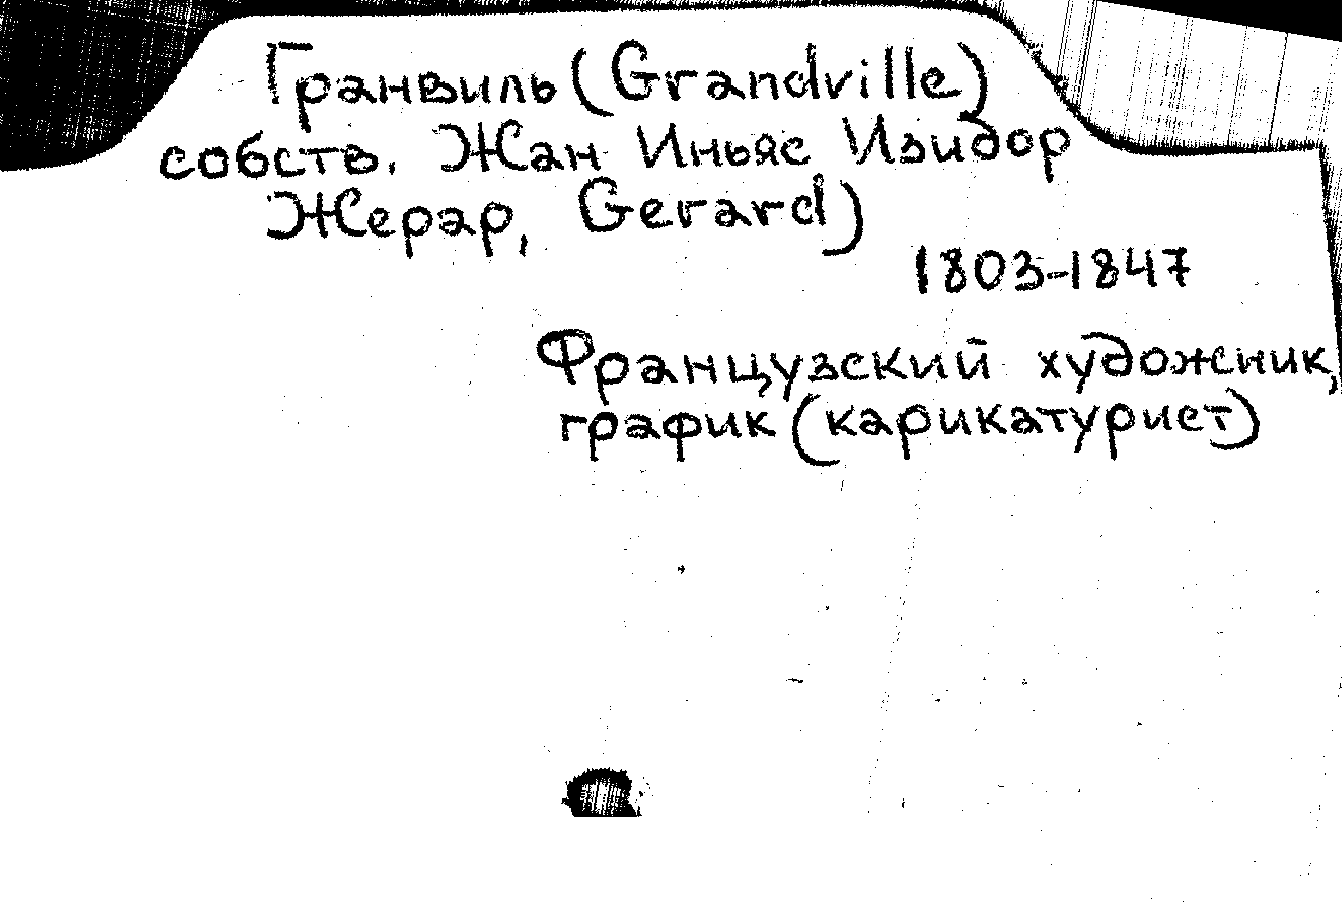 Гранвиль (Grandville)
собств. Жан Иньяс Изидор
Жерар, Gerard)
1803-1847
Французский художник,
график (карикатурист)